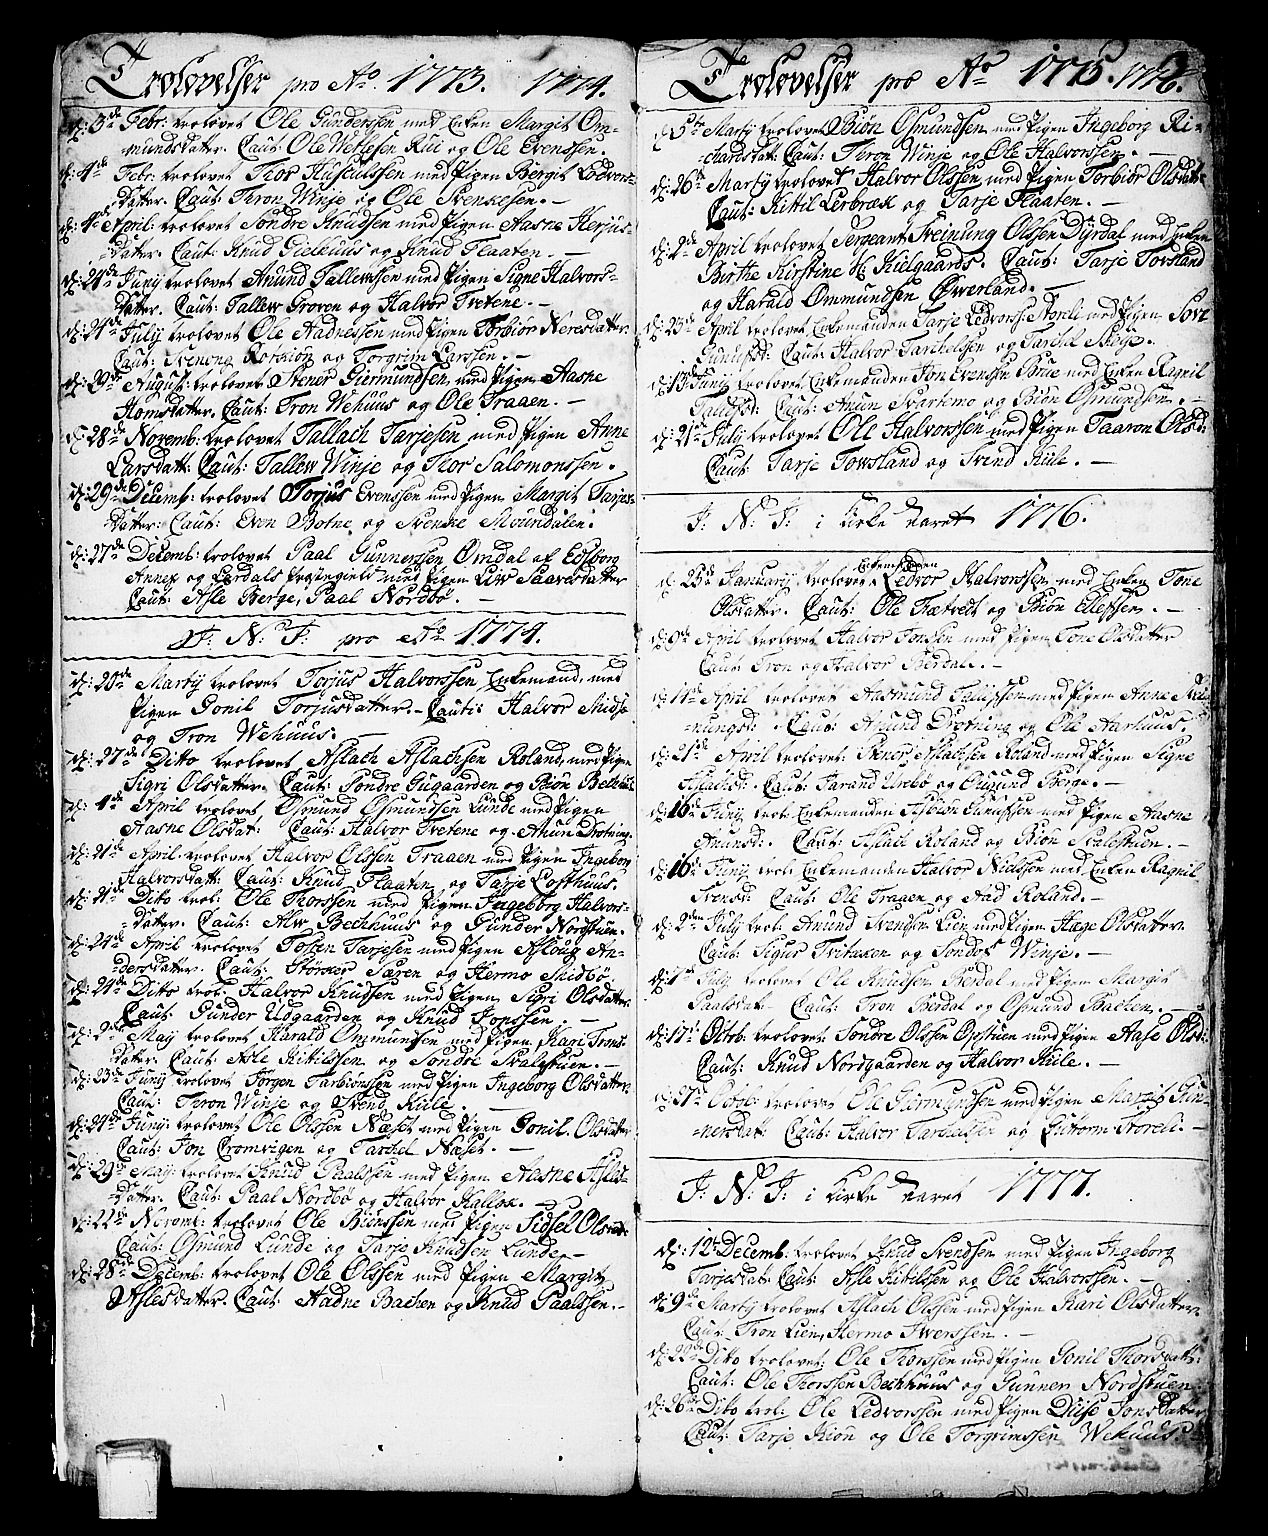 Trolovelser pro Ao. 1773. 1774.
d: 3de Febr: trolovet Ole Gundersen med Enken Margit Om-
mundsdatter. Caut: Ole Wetlesen Rui og Ole Evenssen.
d: 4de Febr: trolovet Thor Huseulssen med Pigen Bergit Ledvors-
datter. Caut: Thron Winje og Ole Svenkesen. —
d: 4de April: trolovet Sondre Knudsen med Pigen Aasne Herjus-
datter. Caut: Knud Gielhuus og Knud Flaaten. —
d: 24de Junij trolovet Anund Tallewssen med Pigen Signe Halvors-
datter. Caut: Tallew Groven og Halvor Tvetene. —
d: 24de Julij trolovet Ole Aadnessen med Pigen Torbiør Neresdatter.
Caut: og Torgrim Larssen. —
d: 29de August: trolovet Stener Giermundsen, med Pigen Aasne
Homsdatter. Caut: Tron Wehuus og Ole Traaen. —
d: 28de Novemb: trolovet Tallach Tarjesen med Pigen Anne
Larsdatt: Caut: Tallew Winje og Thor Salomonssen.
d: 29de Decemb: trolovet Torjus Evenssen med Pigen Margit Tarjes-
datter: Caut: Even Botne og Svenke Moundalen.
d: 27de Decemb: trolovet Paal Gunnerssen Omdal af Edsborg
Annex og Lardals Præstegield med Pigen Liv Saavesdatter
Caut: Asle Berge, Paal Nordbø. —
J: N: J: pro Ao 1774.
d: 20de Martij trolovet Torjus Halvorssen Enkemand, med
Pigen Gonil Torjusdatter. — Caut: Halvor Midbø
og Tron Wehuus. —
d: 27de Ditto trolovet Aslach Aslachsen Roland, med Pigen
Sigri Olsdatter. Caut: Sondre Gugaarden og Biøn Bechhuus
d: 4de April trolovet Osmund Osmundsen Lunde med Pigen
Aasne Olsdat: Caut: Halvor Tvetene og Anun Drotning.
d: 21de April trolovet Halvor Olssen Traaen med Pigen Ingeborg
Halvorsdatt: Caut: Knud Flaaten, og Tarje Lofthuus.
d: 21de Dito trol: Ole Thorssen med Pigen Ingeborg Halvors-
datter. Caut: Alv Bechhuus og Gunder Norstuen.
d: 24de April trolovet Tosten Tarjesen med Pigen Asloug An-
dersdatter. Caut: Størker Særen og Hermo Midbø.
d: 24de Dito trol: Halvor Knudsen med Pigen Sigri Olsdatter
Caut: Gunder Udgaarden og Knud Jonssen. —
d: 2de May trolovet Harald Ommundsen med Pigen Kari Trons-
datter. Caut: Asle Kitilssen og Sondre Svalestuen. —
d: 23de Junij trolovet Jørgen Tarbiønssen med Pigen Ingeborg Olsdatter
Caut: Thron Winje og Svend Kiile. —
d: 24de Junij: trolovet Ole Olssen Næset med Pigen Gonil Olsdatter
Caut: Jon Cromvigen og Tarchel Næset. —
d: 29de May: trolovet Knud Paalssen med Pigen Aasne Asles-
datter. Caut: Paal Nordbø og Halvor Kallbk. —
d: 22de Novemb: trolovet Ole Biønssen med Pigen Sidsel Olsdat:
Caut: Osmund Lunde og Tarje Knudsen Lunde. —
d: 28de Decemb: trolovet Ole Olssen med Pigen Margit
Aslesdatter. Caut: Aadne Bachen og Knud Paalssen. —
Trolovelser pro Ao 1775. 1776.
d: 5te Martij trolovet Biøn Osmundsen med Pigen Ingeborg Ri-
chardsdatt: Caut: Thron Winje og Ole Halvorssen. —
d: 26te Martij trolovet Halvor Olssen med Pigen Torbiør Olsdatt:
Caut: Kittil Lerbræk og Tarje Flaaten. —
d: 2de April trolovet Sergeant Sveinung Olssen Dyrdal med Enken
Birthe Kirstine H: Kielgaards. Caut: Tarje Towsland
og Harald Ommundsen Øwerland. —
d: 23de April trolovet Enkemanden Tarje Ledvors: Storli med Pigen
Caut: Halvor Tarchelssen og Tarchel Skeje.
d: 13de Junij trolovet Enkemanden Jon Evensen Brue med Enken Ragnil
Caut: Anun Svartemo og Biøn Osmundsen. —
d: 21de Julij trolovet Ole Halvorssen med Pigen Taaron Olsd:
Caut: Tarje Towsland og Svend Kiile. —
J: N: J: i Kirke Aaret 1776.
d: 25de Januarij trolovet Enkemanden Ledvor Halvorssen med Enken Tone
Olsdatter. Caut: Ole Trætvedt og Biøn Ellefsen. —
d: 9de April trolovet Halvor Jonsen med Pigen Tone Olsdatter
Caut: Tron og Halvor Berdal. —
d: April trolovet Aasmund med Pigen Anne
mungsd: Caut: Anund Drotning og Ole Aarhuus.
d: 21de April trolovet: Stener Aslachsen Roland med Pigen Signe
Aslachsd. Caut: Tarand Urebø og Berge. —
d: 16de Junij trol: Enkemanden med Pigen Aasne
Anunsd: Caut: Aslach Roland og Biøn Svalestuen. —
d: 16de Junij trol: Enkemanden Halvor Nielssen med Enken Ragnil
Svensd: Caut: Ole Traaen og Aad Roland. —
d: 2den Julij trol: Anund Svensen Lien med Pigen Hæge Olsdatter.
Caut: Sigur Tvitæken og Sondof Winje. —
d: Julij trolovet Ole Knudsen Berdal med Pigen Margit
Paalsdat: Caut: Tron Berdal og Osmund Bachen. —
d: 17de Octob: trolovet Sondre Olssen med Pigen Aase Olsd:
Caut: Knud Nordgaarden og Halvor Kiile. —
d: 27de Octob: trolovet Ole Giermundsen med Pigen Margit Gun-
nersdatt: Caut: Halvor Tarchelsen og Guttorm Storeli. —
J: N: J: i Kirke Aaret 1777.
d: 12te Decemb: trolovet Knud Svendsen med Pigen Ingeborg
Tarjesdat: Caut: Asle Kitilsen og Ole Halvorssen. —
d: 9de Martij trolovet Aslach Olssen med Pigen Kari Olsdatter.
Caut: Tron Lien, Hermo Iwerssen. —
d: 22de Dito trolovet: Ole Thorssen med Pigen Gonil Thorsdatt:
Caut: Ole Thorssen Bechhuus og Gunner Nordstuen.
d: 26de Dito trol: Ole Ledvorssen med Pigen Duse Jonsdatter
Caut: Tarje Kion og Ole Torgrimssen Wehuus.